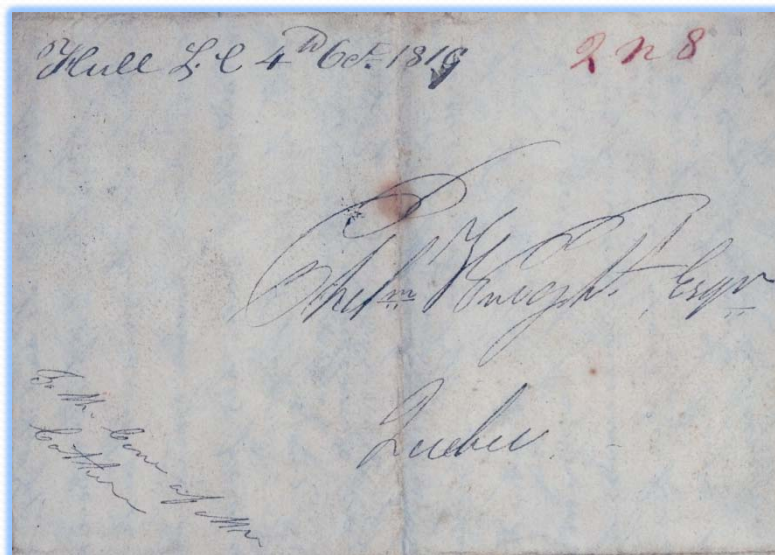 Hull L.C 4th Oct. 1819
2 N 8
Knight Esqr
Quebec
To the Care of Mr